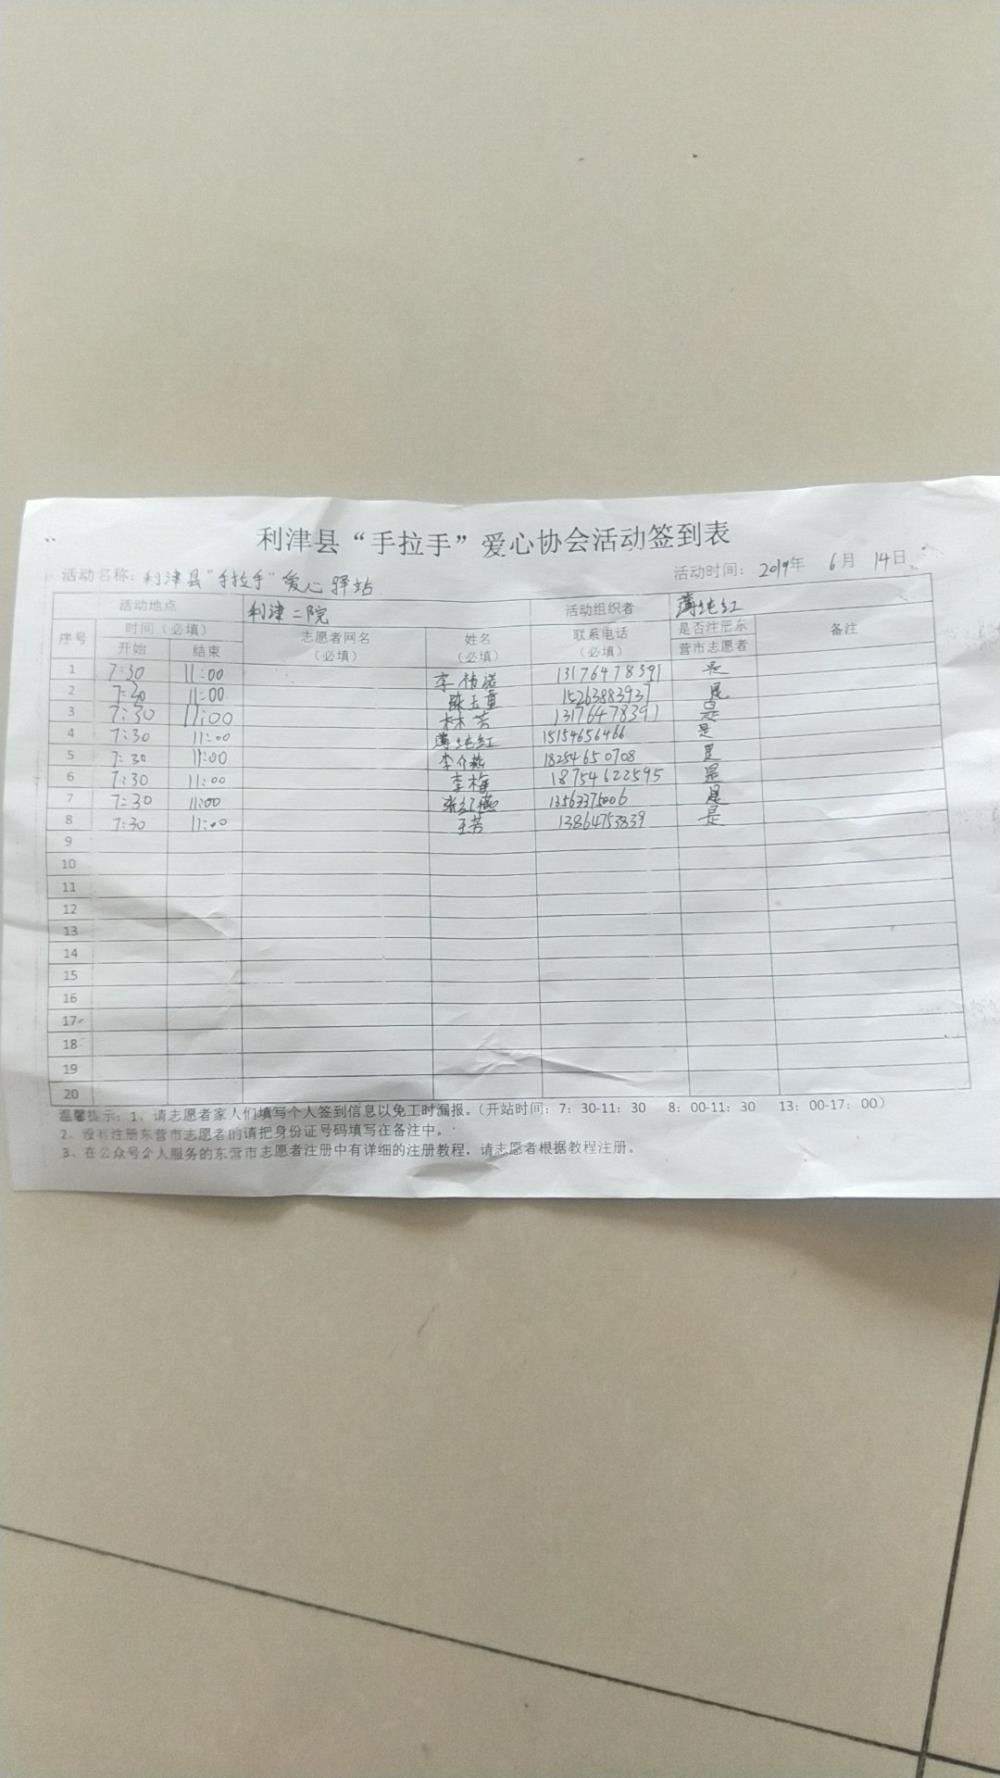 利津县“手拉手”爱心协会活动签到表
活动名称：利津县“手拉手”爱心驿站 活动时间： 2019年 6月 14日
活动地点 利津二院 活动组织者 薄纯红
序号 时间（必填） 志愿者网名（必填） 姓名（必填） 联系电话（必填） 是否注册东营市志愿者 备注
开始 结束
1 7:30 11:00 李 13176478391 是
2 7:30 11:00 陈玉重 15263883937 是
3 7:30 11:00 林芳 13176478391 是
4 7:30 11:00 薄纯红 15154656466 是
5 7:30 11:00 李介燕 18254650708 是
6 7:30 11:00 李梅 18754622595 是
7 7:30 11:00 张红燕 13563375006 是
8 7:30 11:00 王芳 13864753839 是
9
10
11
12
13
14
15
16
17
18
19
20
温馨提示：1、请志愿者家人们填写个人签到信息以免工时漏报。（开站时间：7：30-11：30 8：00-11：30 13：00-17：00）
2、没有注册东营市志愿者的请把身份证号码填写在备注中。
3、在公众号个人服务的东营市志愿者注册中有详细的注册教程，请志愿者根据教程注册。